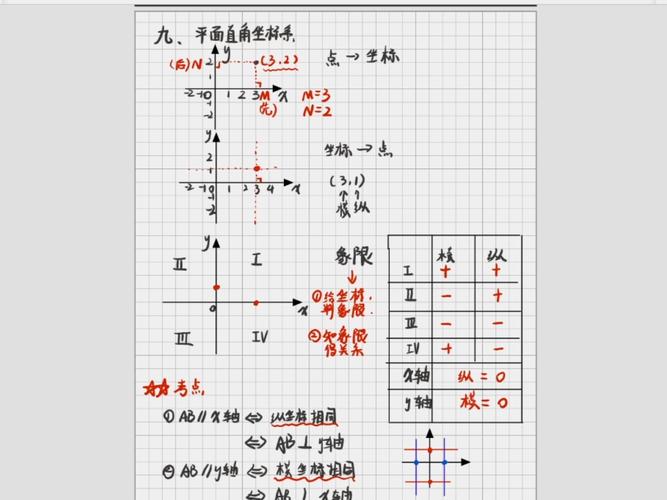 九、平面直角坐标系
y
(后)N 2 (3,2) 点→坐标
1
-2 -1 0 1 2 3 M x M=3
-1 (先) N=2
-2
y
2 坐标→点
1
-2 -1 0 1 2 3 4 x (3,1)
-1 ↑ ↑
-2 横 纵
y
II I 象限
↓
①给坐标,
判象限.
0 x
III IV ②知象限
得关系
横 纵
I + +
II - +
III - -
IV + -
x轴 纵=0
y轴 横=0
☆☆考点.
①AB∥x轴⇔纵坐标相同
⇔AB⊥y轴
②AB∥y轴⇔横坐标相同
⇔AB⊥x轴